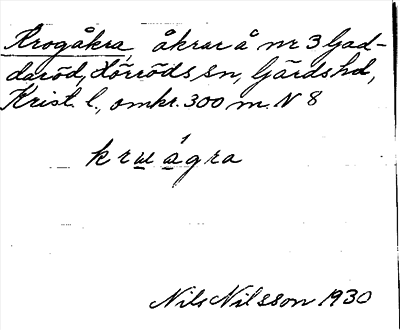 Krogåkra, åkrar å nr 3 Gad-
daröd, Hörröds sn, Gärds hd,
Krist. l., omkr. 300 m. N 8
kruågra
Nils Nilsson 1930